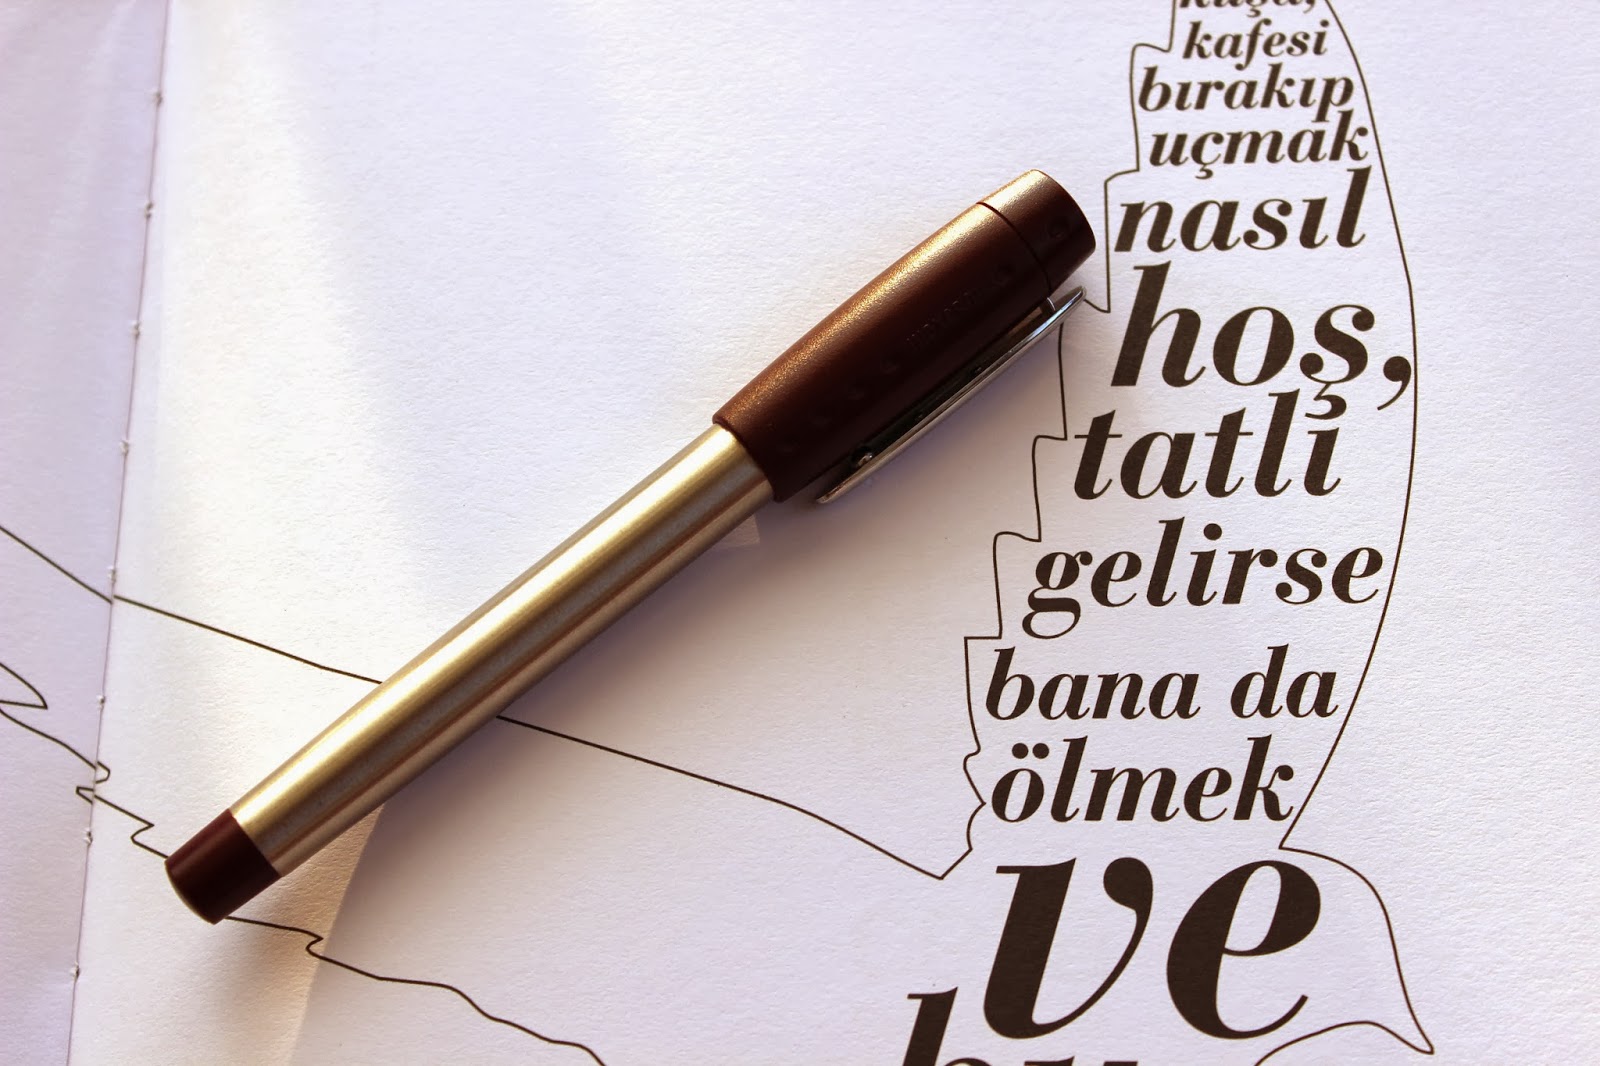 kuşa,
kafesi
bırakıp
uçmak
nasıl
hoş,
tatlı
gelirse
bana da
ölmek
ve